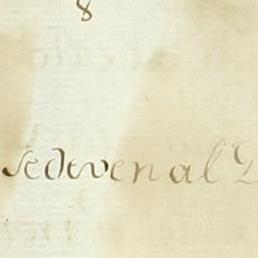 8
se deven al